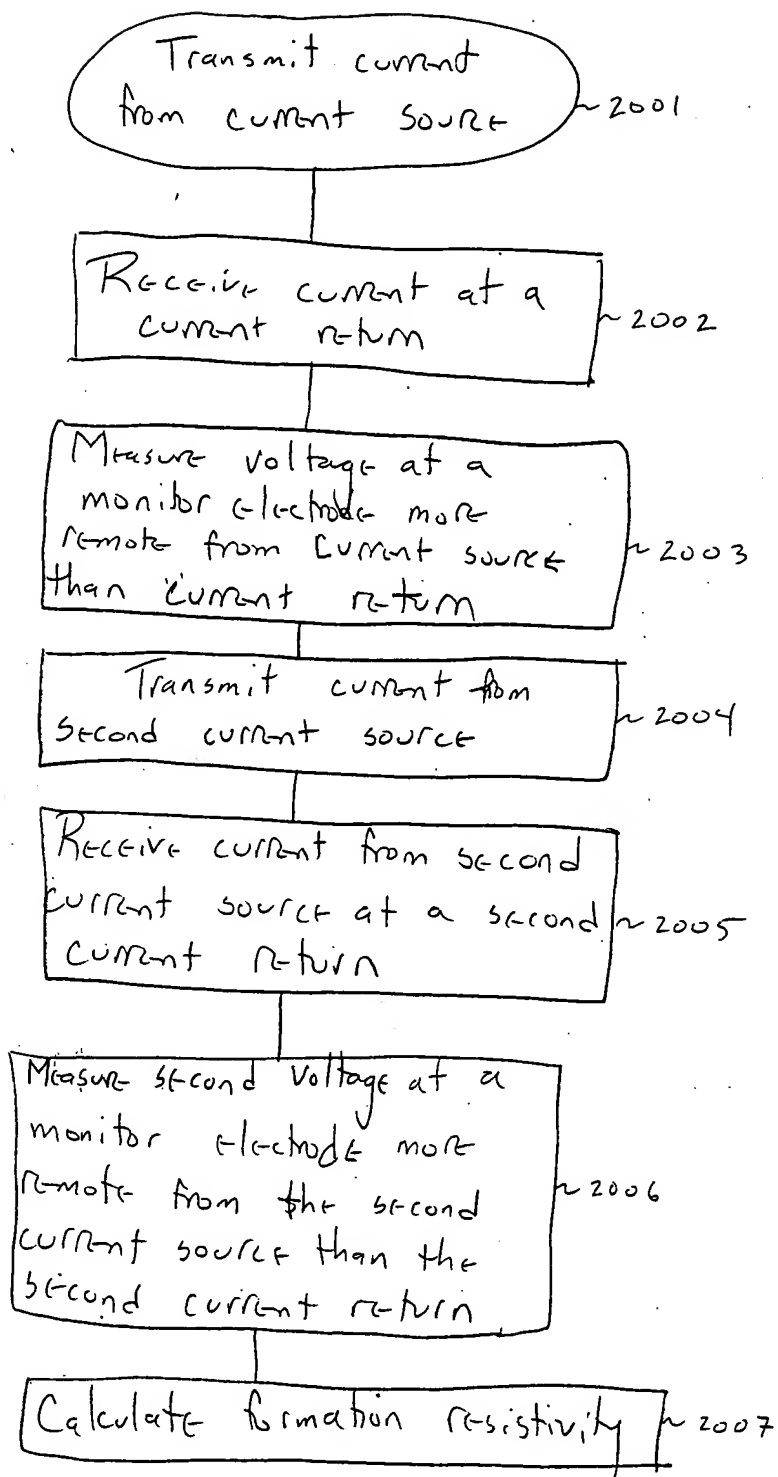 Transmit current
from current source
~ 2001
Receive current at a
current return
~ 2002
Measure voltage at a
monitor electrode more
remote from current source
than current return
~ 2003
Transmit current from
second current source
~ 2004
Receive current from second
current source at a second
current return
~ 2005
Measure second voltage at a
monitor electrode more
remote from the second
current source than the
second current return
~ 2006
Calculate formation resistivity
~ 2007